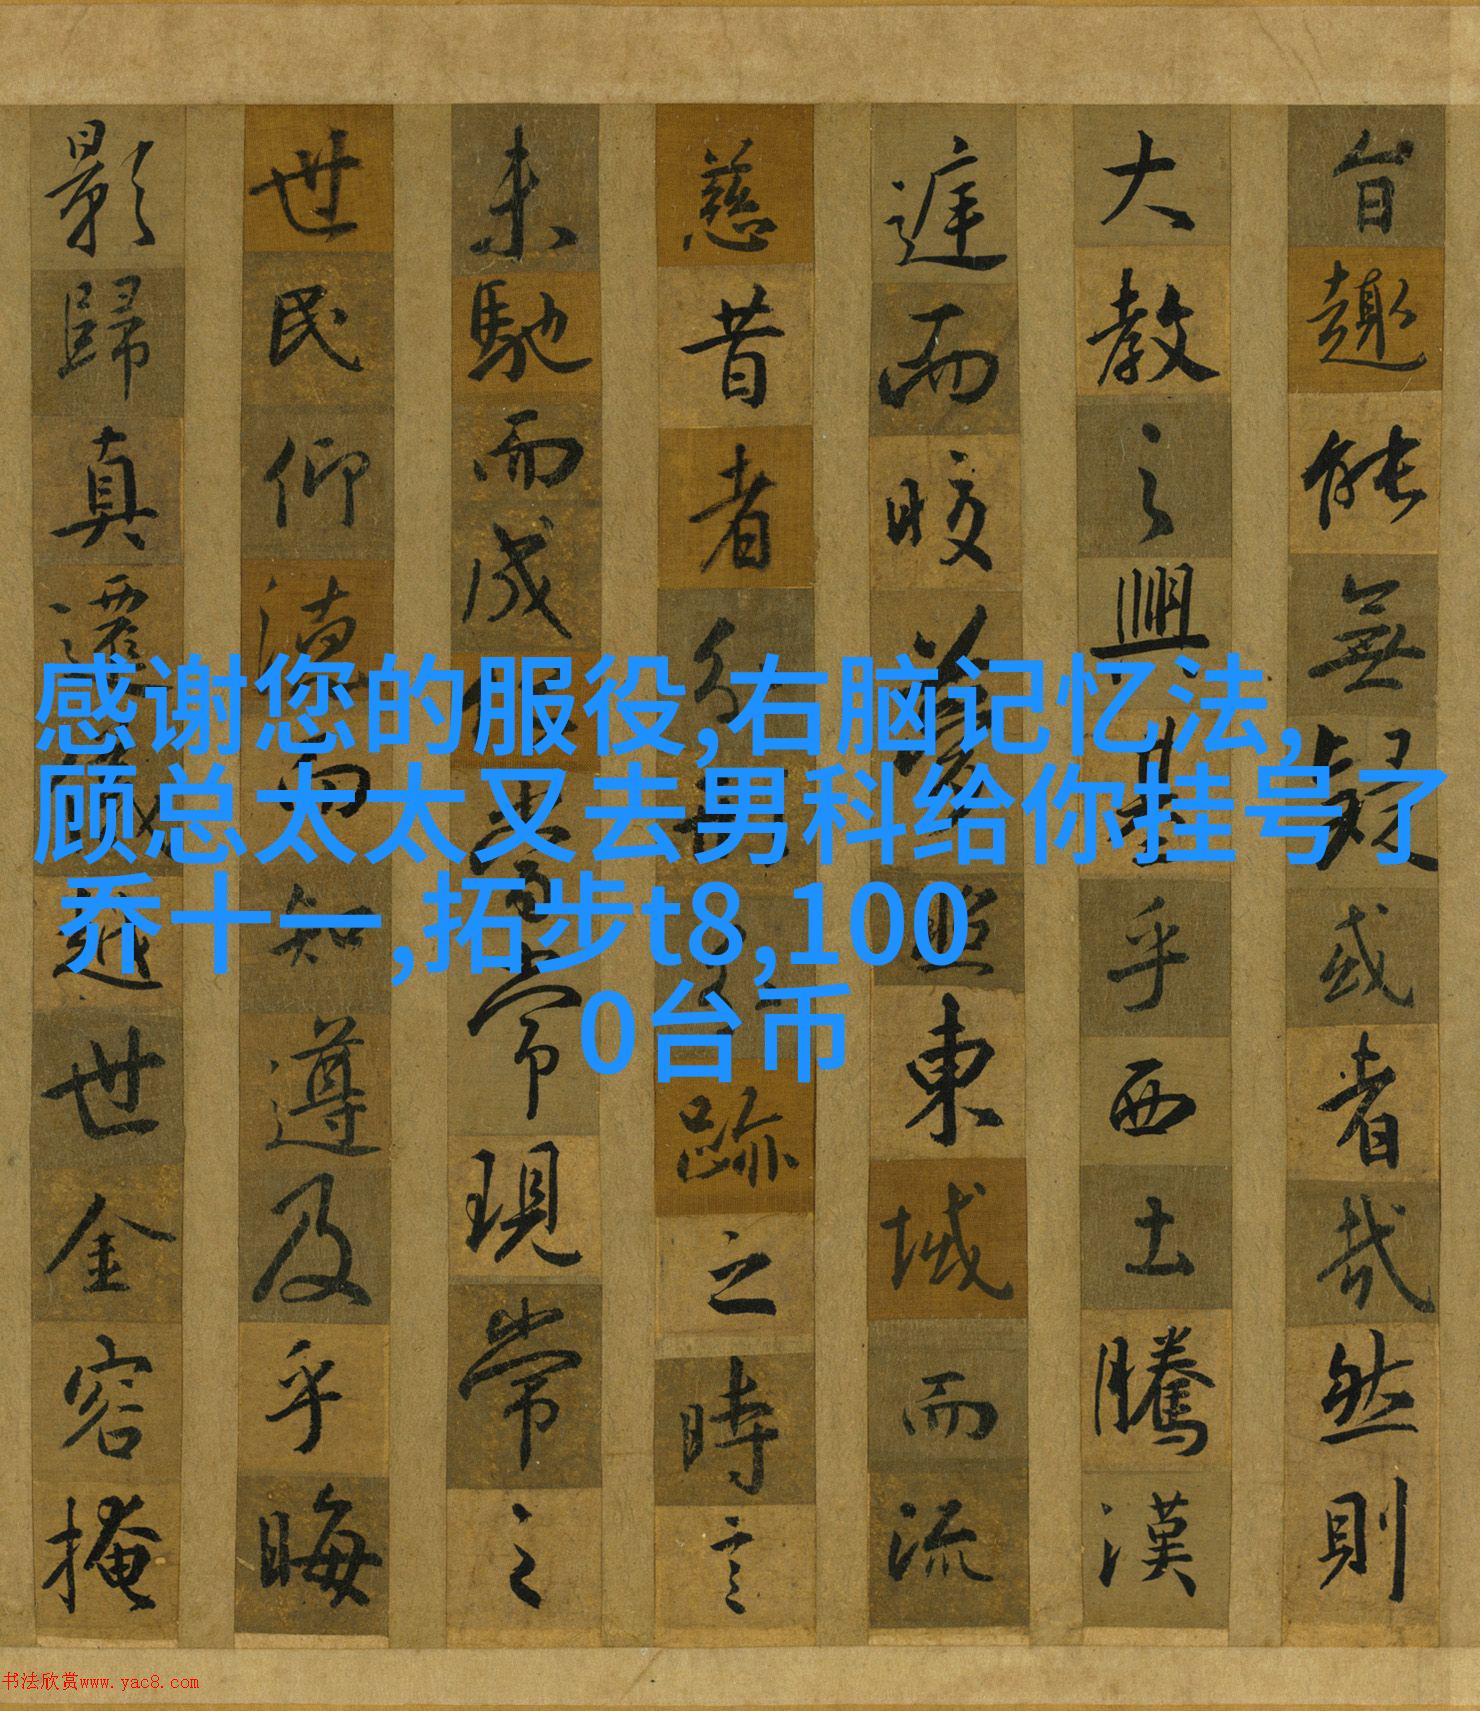 感谢您的服役,右脑记忆法,
顾总太太又去男科给你挂号了
乔十一,拓步t8,100
0台币
旨趣能無疑或者哉然則
大教之興基乎西土騰漢
庭而皎夢照東域而流
慈昔者分形分跡之時言
未馳而成化當常現常之
世民仰德而知遵及乎晦
影歸真遷儀越世金容掩
书法欣赏www.yac8.com